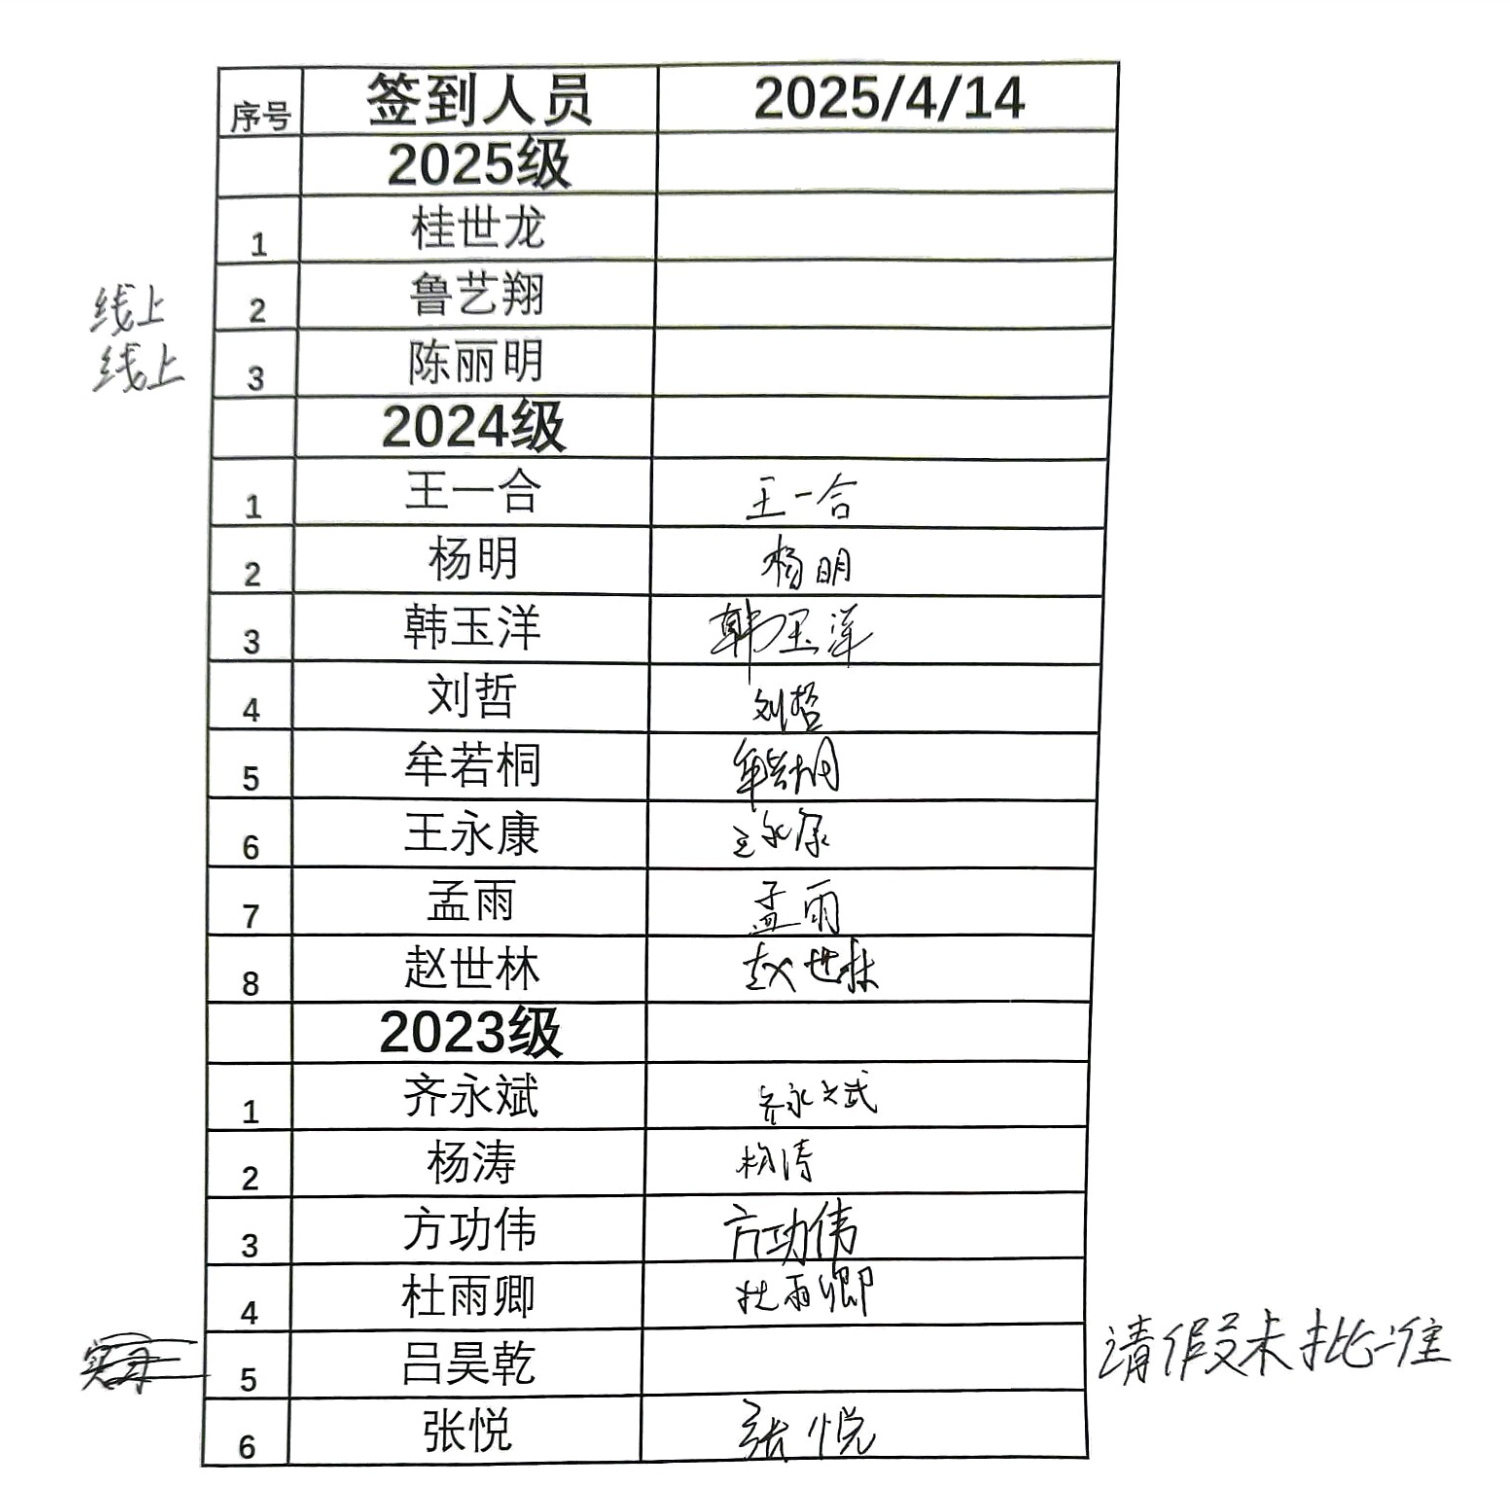 序号 签到人员 2025/4/14
2025级
1 桂世龙
线上 2 鲁艺翔
线上 3 陈丽明
2024级
1 王一合 王一合
2 杨明 杨明
3 韩玉洋 韩玉洋
4 刘哲 刘哲
5 牟若桐 牟若桐
6 王永康 王永康
7 孟雨 孟雨
8 赵世林 赵世林
2023级
1 齐永斌 齐永斌
2 杨涛 杨涛
3 方功伟 方功伟
4 杜雨卿 杜雨卿
5 吕昊乾 请假未批准
6 张悦 张悦